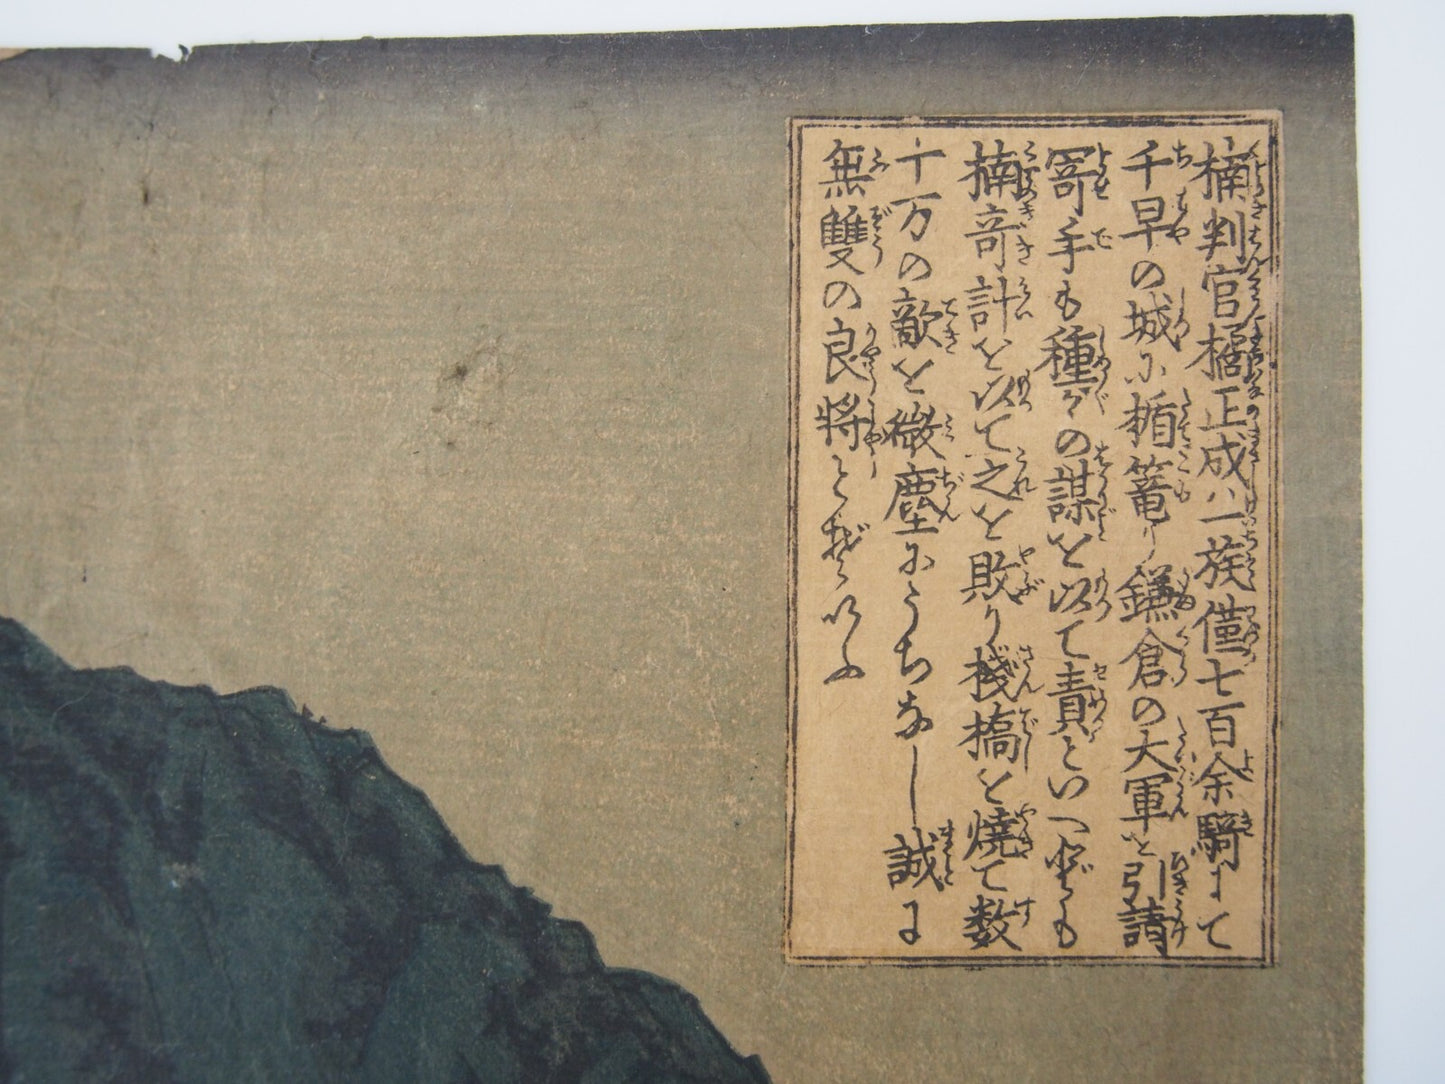 楠判官橘正成ハ一族僅七百余騎にて
千早の城に楯篭り鎌倉の大軍を引請
寄手も種々の謀を以て責といへども
楠竒計を以て之を敗り桟橋を焼て数
十万の敵を微塵にうちなし誠に
無雙の良将とぞいふ